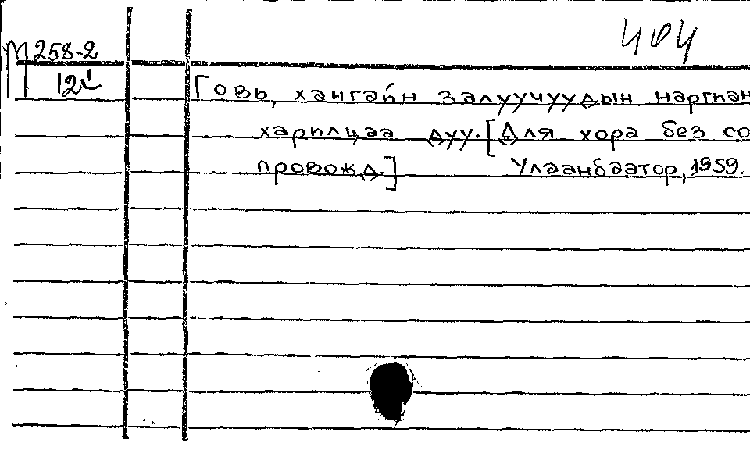 404
М 258-2
12
Говь, хангайн залуучуудын наргиан
харилцаа дуу. [Для хора без со
провожд.] Улаанбаатор, 1959.